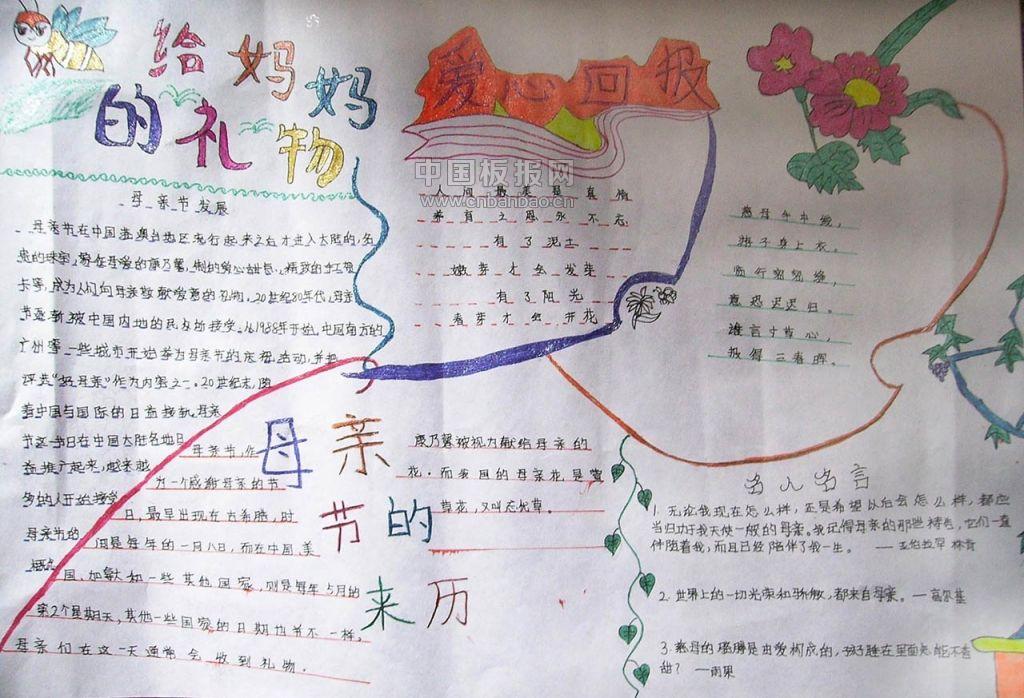 给妈妈
的礼物
母亲节发展
母亲节在中国港澳台地区流行起来之后才进入大陆的,名
贵的珠宝,象征母爱的康乃馨,
卡等,成为人们向母亲致献爱意的礼物,20世纪80年代,母亲
节逐渐被中国内地的民众所接受。从1988年开始,中国南方的
广州等一些城市开始举办母亲节的庆祝活动,并把
评选“好母亲”作为内容之一。20世纪末,随
着中国与国际的日益接轨,母亲
节这一节日在中国大陆各地日
益推广起来,越来越
多的人开始接受
母亲节的
概念
母亲节,作
为一个感谢母亲的节
日,最早出现在古希腊,时
间是每年的一月八日,而在中国、美
国、加拿大和一些其他国家,则是每年5月的
第2个星期天,其他一些国家的日期也并不一样。
母亲们在这一天通常会收到礼物。
母亲
节的
来历
康乃馨被视为献给母亲的
花,而我国的母亲花是萱
草花,又叫忘忧草。
爱心回报
中国板报网
www.cnbanbao.cn
人间最美是真情
养育之恩永不忘
有了泥土
嫩芽才会发芽
有了阳光
春芽才会开花
慈母手中线,
游子身上衣。
临行密密缝,
意恐迟迟归。
谁言寸草心,
报得三春晖。
名人名言
1. 无论我现在怎么样,还是希望以后会怎么样,都应
当归功于我天使一般的母亲。我记得母亲的那些祷告,它们一直
伴随着我,而且已经陪伴了我一生。 ——亚伯拉罕 林肯
2. 世界上的一切光荣和骄傲,都来自母亲。——高尔基
3. 慈母的胳膊是由爱构成的,孩子睡在里面怎能不香
甜? ——雨果